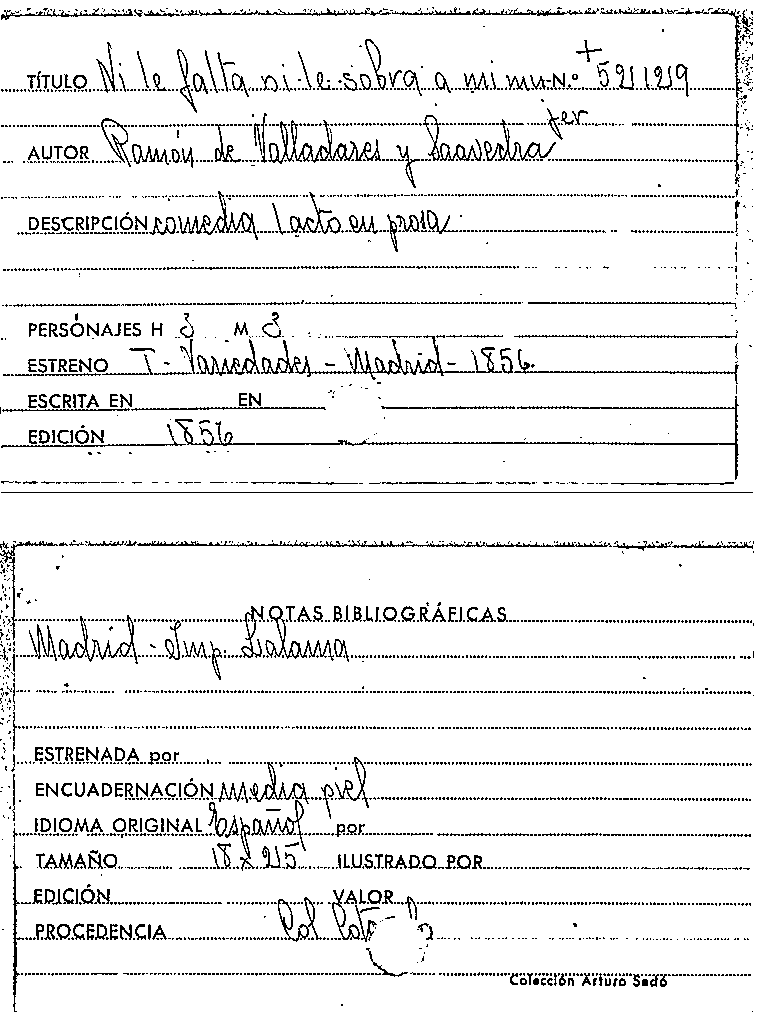 TÍTULO Ni le falta ni le sobra a mi mu- N.º + 521219
jer
AUTOR Ramón de Valladares y Saavedra
DESCRIPCIÓN comedia 1 acto en prosa
PERSONAJES H 3 M 3
ESTRENO T. Variedades - Madrid - 1856.
ESCRITA EN EN
EDICIÓN 1856
NOTAS BIBLIOGRÁFICAS
Madrid - Imp. Lalama
ESTRENADA por
ENCUADERNACIÓN media piel
IDIOMA ORIGINAL Español por
TAMAÑO 18 x 215 ILUSTRADO POR
EDICIÓN VALOR
PROCEDENCIA Col
Colección Arturo Sedó